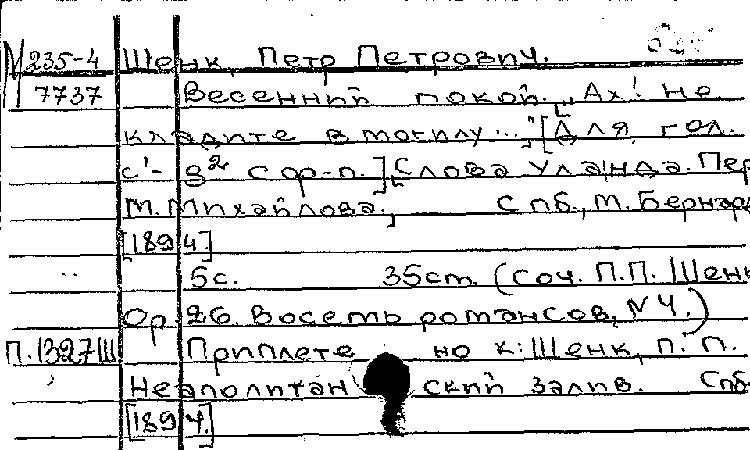 М 235-4 Шенк, Петр Петрович.
7737 Весенний покой. „Ах! Не
кладите в могилу..." [Для гол.
с¹-g² с ор-п.] Слова Уланда. Пер
М. Михайлова. Спб., М. Бернард
[1894.]
5с. 35ст. (Соч. П.П. Шенк
Ор. 26. Восемь романсов, № 4.)
П.1327Ш Приплетено к: Шенк, П. П.
Неаполитанский залив. Спб
[1894.]